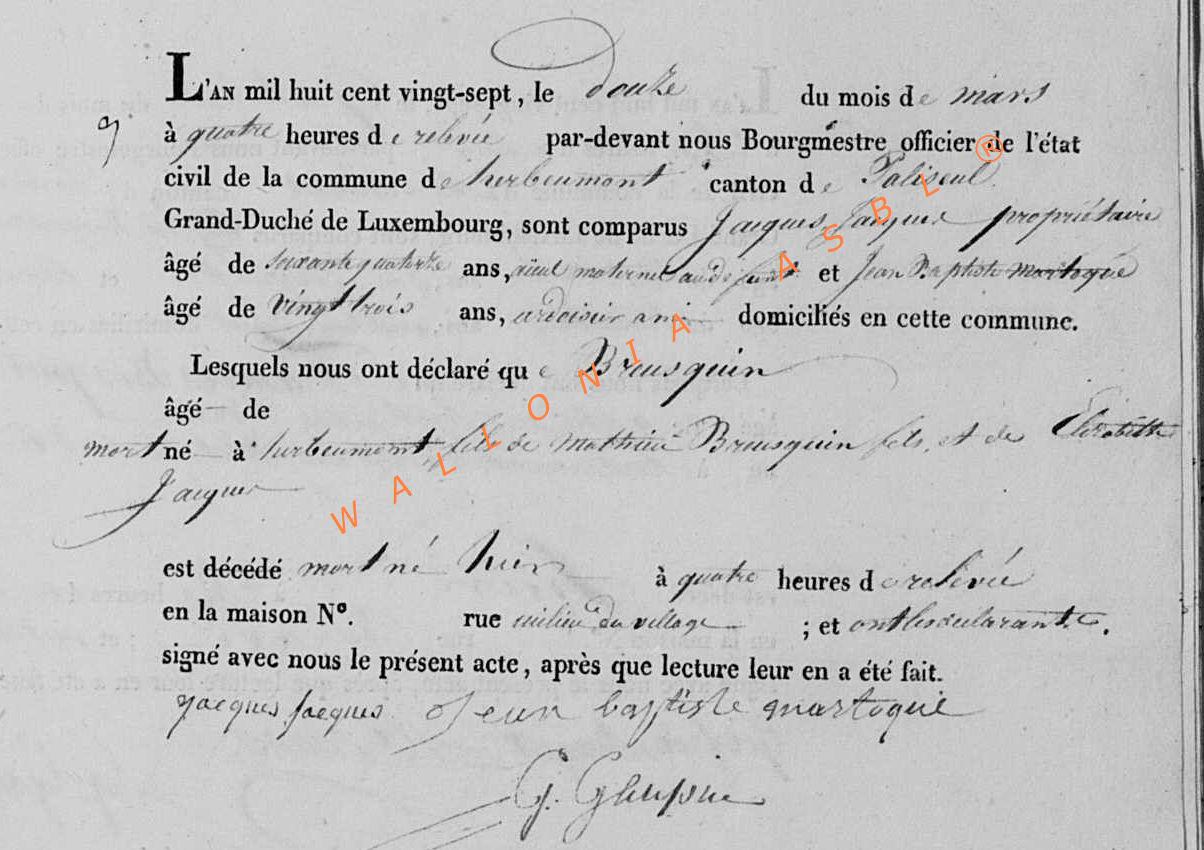 L'AN mil huit cent vingt-sept, le douze du mois de mars
9 à quatre heures de relevée par-devant nous Bourgmestre officier de l'état
civil de la commune de herbeumont canton de Paliseul
Grand-Duché de Luxembourg, sont comparus Jacques Jacques propriétaire
âgé de soixante quatorze ans, aieul maternel au défunt et Jean Baptiste Martoqué
âgé de vingt trois ans, ardoisier ami domiciliés en cette commune.
Lesquels nous ont déclaré que Brusquin
âgé de
mort né à herbeumont fils de Mathieu Brusquin fils, et de Elisabeth
Jacques
est décédé mort né hier à quatre heures de relevée
en la maison N°. rue milieu du village ; et ont les déclarants
signé avec nous le présent acte, après que lecture leur en a été fait.
Jacques Jacques Jean baptiste Martoqué
G.
WALLONIA ASBL ®